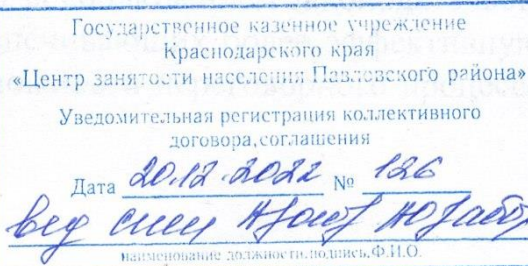 Государственное казенное учреждение
Краснодарского края
«Центр занятости населения Павловского района»
Уведомительная регистрация коллективного
договора, соглашения
Дата 20.12.2022 № 126
вед спец
наименование должности, подпись, Ф.И.О.